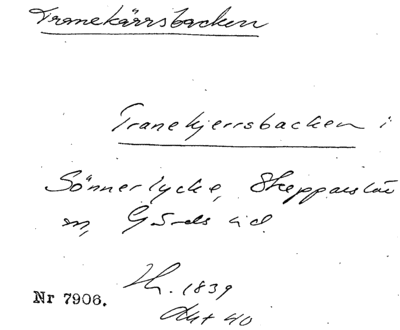 Tranekärrsbacken
Tranekjerrsbacken i
Sönnerlycke, Skepparslöv
sn, Gärds hd.
Nr 7906.
1839
40